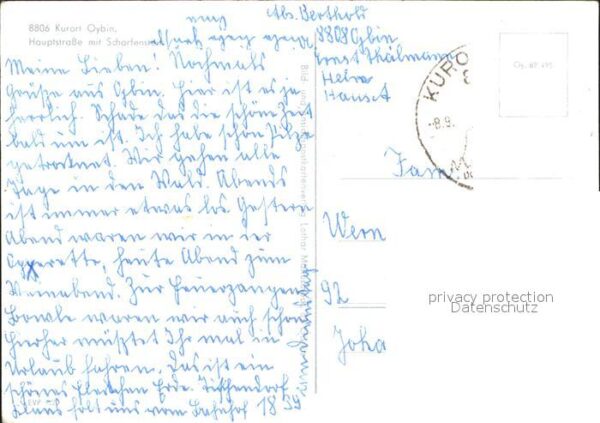 8806 Kurort Oybin,
Hauptstraße mit Scharfenst
Abs. Berthold
8808 Oybin
Ernst Thälmann
Heim
Haus A
Meine Lieben! Nochmals
Grüße aus Oybin. Hier ist es ja
herrlich. Schade das die schöne Zeit
bald um ist. Ich habe schon Pilze
getrocknet. Wir gehen alle
Tage in den Wald. Abends
ist immer etwas los. Gestern
Abend waren wir in der
Operette, heute Abend zum
Weinabend. Zur Feuerzangen
Bowle waren wir auch schon
Hierher müßtet Ihr mal in
Urlaub fahren. Das ist ein
schönes Fleckchen Erde.
Klaus holt uns vom Bahnhof 18 59
KURO
-8.9.
Fam
Wern
92
Joha
privacy protection
Datenschutz